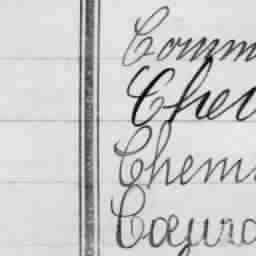 Comm
Chev
Chem
Cœurd